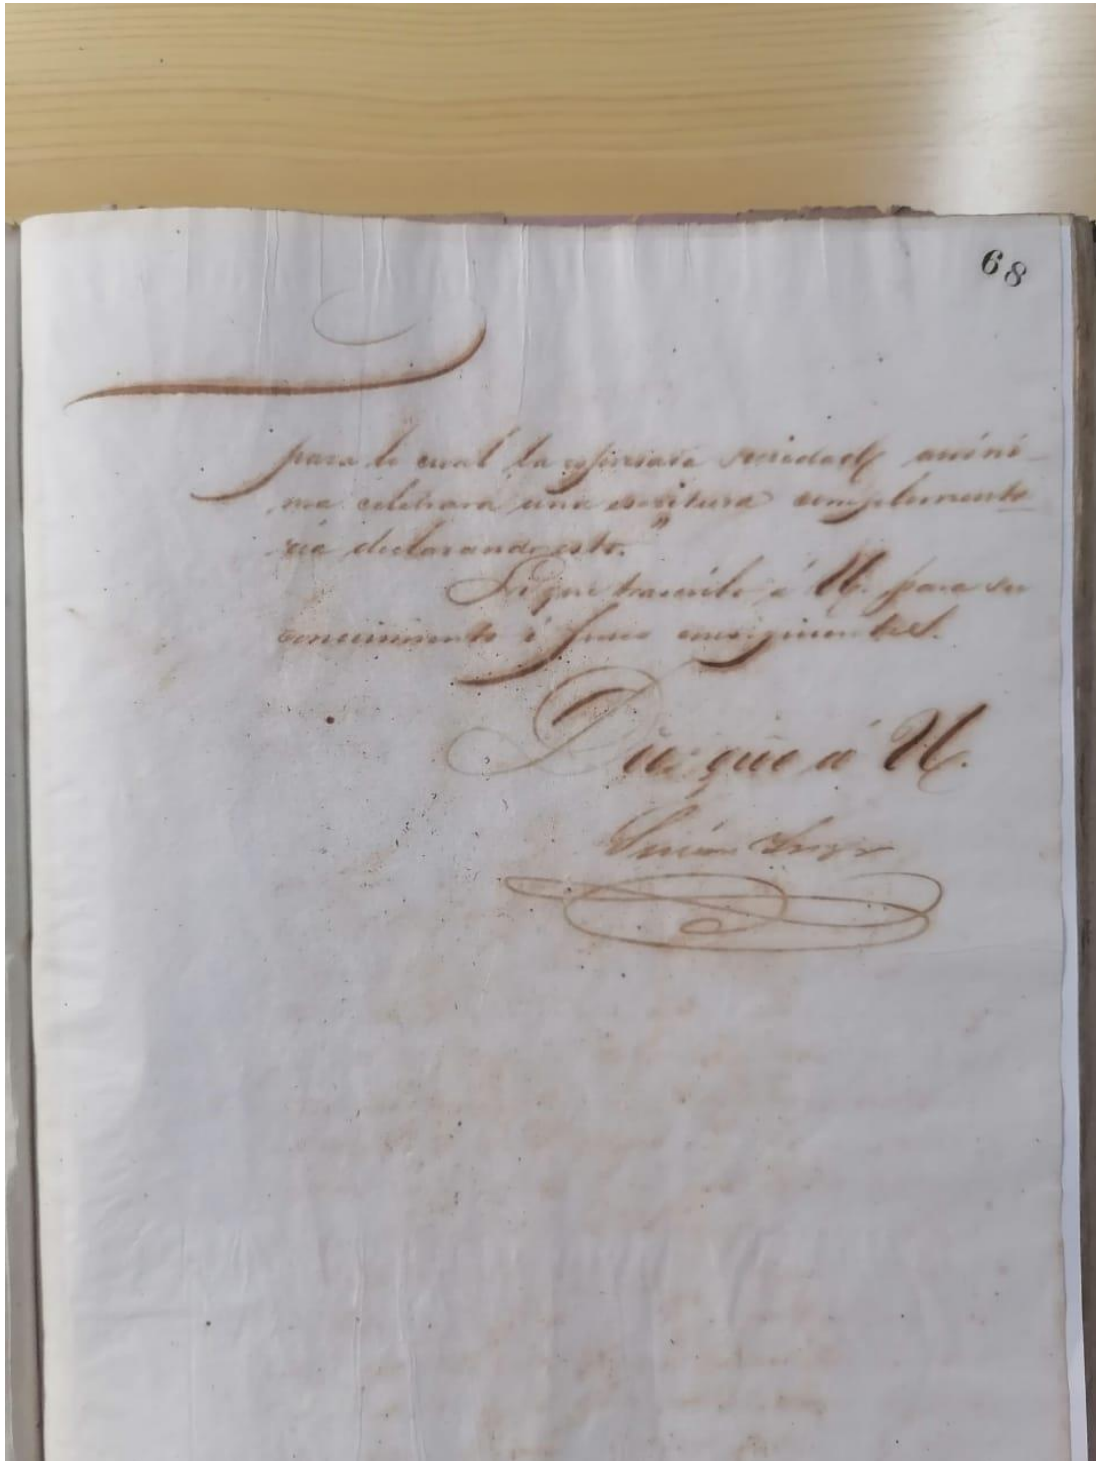 68
para lo cual la espresada sociedad anóni-
ma celebrará una escritura complementa
ria declarando esto."
Lo que trascribo á U. para su
conocimiento i fines consiguientes.
Dios gũe a U.